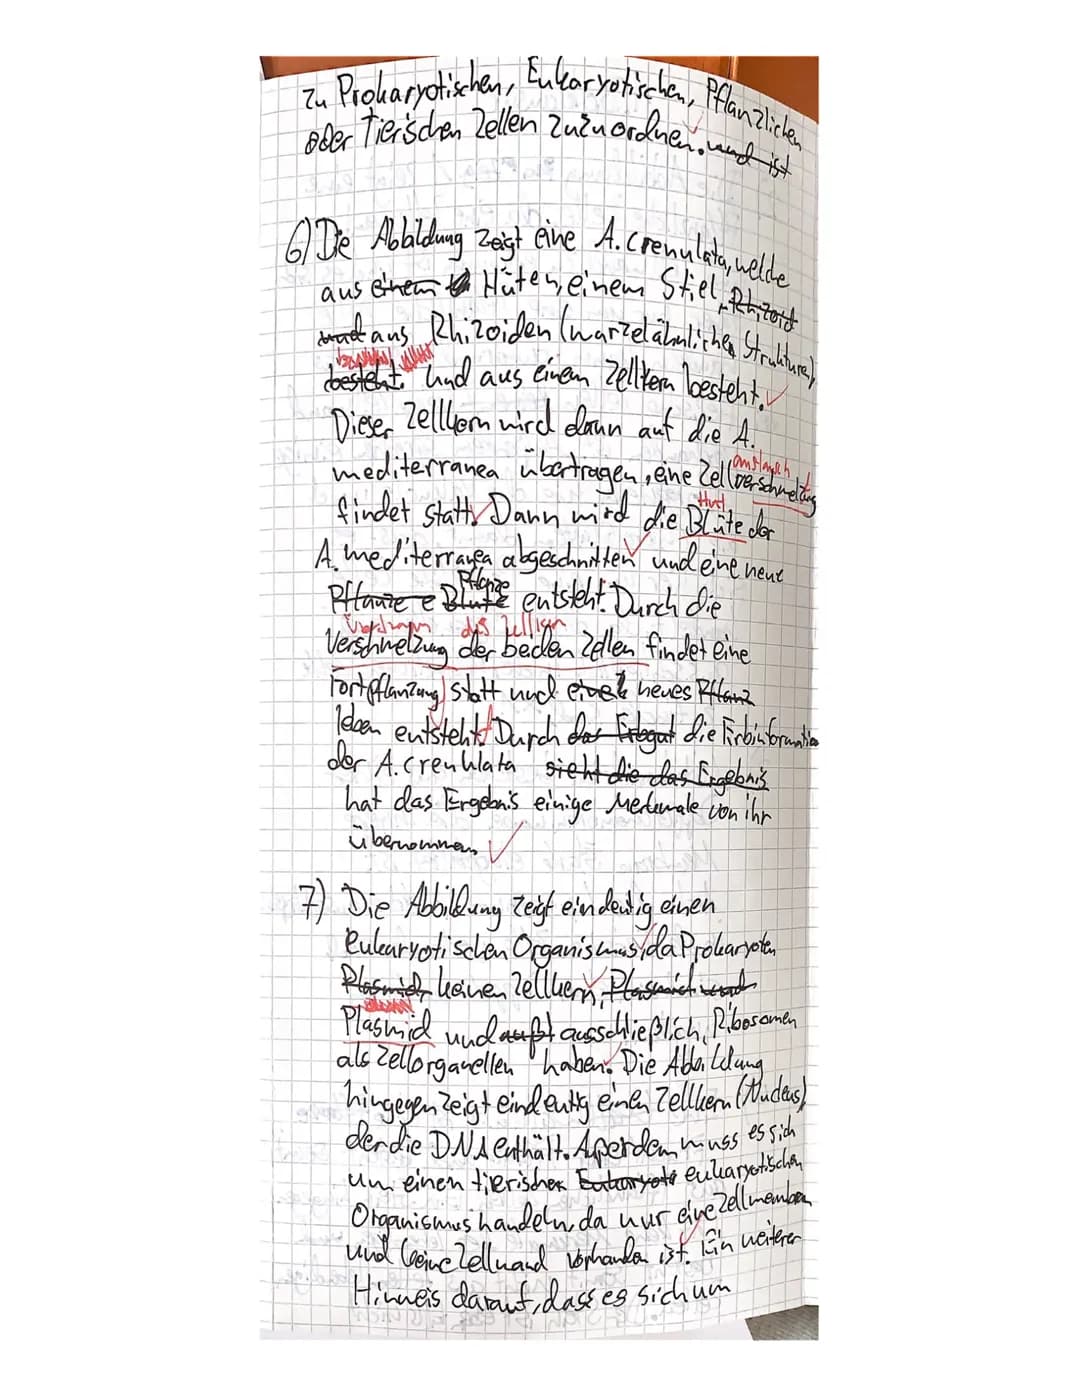 zu Prokaryotischen, Eukaryotischen, Pflanzlichen
oder Tierischen Zellen zuzuordnen. und ist
6) Die Abbildung zeigt eine A. crenulata, welche
aus einem Hüten, einem Stiel, Rhizoid
und aus Rhizoiden (wurzelähnliche Strukturen)
besteht. und aus einem Zellkern besteht.
Dieser Zellkern wird dann auf die A.
austausch
mediterranea übertragen, eine Zellverschmelzung
Hut
findet statt. Dann wird die Blüte der
A. mediterranea abgeschnitten und eine neue
Pflanze
Pflanze e Blüte entsteht. Durch die
des
Verschmelzung der beiden Zellen findet eine
Fortpflanzung statt und neues Pflanz
leben entsteht. Durch das Erbgut die Erbinformation
der A. crenulata sieht die das Ergebnis
hat das Ergebnis einige Merkmale von ihr
übernommen
7) Die Abbildung zeigt eindeutig einen
eukaryotischen Organismus, da Prokaryoten
Plasmid, keinen Zellkern, Plasmid und
Plasmid und ausschließlich Ribosomen
als Zellorganellen haben. Die Abbildung
hingegen zeigt eindeutig einen Zellkern (Nucleus)
der die DNA enthält. Außerdem muss es sich
um einen tierischen Eukaryot eukaryotischen
Organismus handeln, da nur eine Zellmembran
und keine Zellwand vorhanden ist. Ein weiterer
Hinweis darauf, dass es sich um